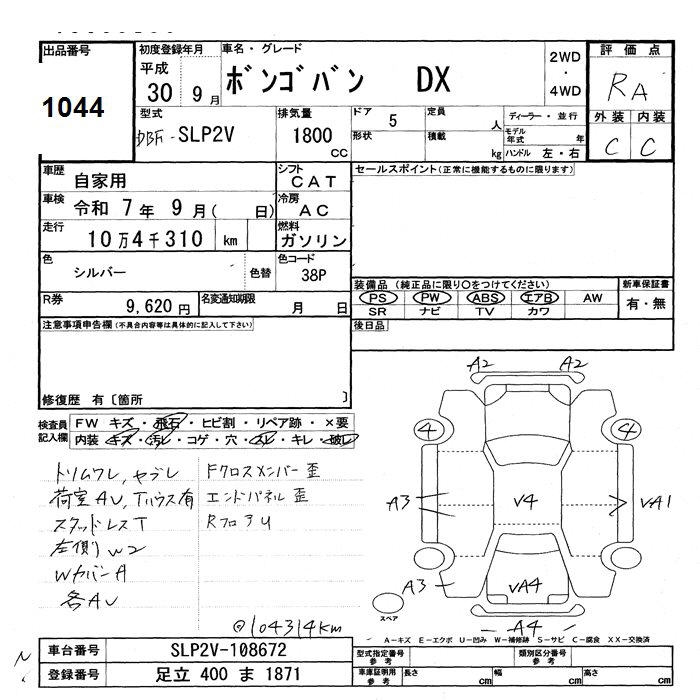 出品番号
1044
初度登録年月
平成
30 9月
車名・グレード
ボンゴバン DX
2WD
・
4WD
評価点
RA
外装 内装
C C
型式
DBF-SLP2V
排気量
1800
CC
ドア 5
定員
人
形状
積載
kg
ディーラー・並行
モデル
年式 年
ハンドル 左・右
車歴
自家用
シフト
CAT
車検
令和 7年 9月( 日)
冷房
AC
走行
10万4千310 km
燃料
ガソリン
色
シルバー
色替
色コード
38P
R券
9,620円
名変通知期限
月 日
セールスポイント(正常に機能するものに限ります)
装備品 (純正品に限り○をつけてください)
PS PW ABS エアB AW
SR ナビ TV カワ
新車保証書
有・無
後日品
注意事項申告欄(不具合内容等は具体的に記入して下さい)
修復歴 有〔箇所 〕
検査員
記入欄
FW キズ・飛石・ヒビ割・リペア跡・×要
内装 キズ・汚レ・コゲ・穴・スレ・キレ・破レ
トリムワレ, ヤブレ
荷室AU, Tハウス有
スタッドレスT
左側リW2
WカバーA
各AU
Fクロスメンバー歪
エンドパネル歪
RフロアU
@104314Km
A2 A2
4 4
A3 V4 VA1
A3 VA4
A4
スペア
A-キズ E-エクボ U-凹み W-補修跡 S-サビ C-腐食 XX-交換済
車台番号
SLP2V-108672
登録番号
足立 400 ま 1871
型式指定番号
参考
類別区分番号
参考
車庫証明用
参考
長さ cm
幅 cm
高さ cm